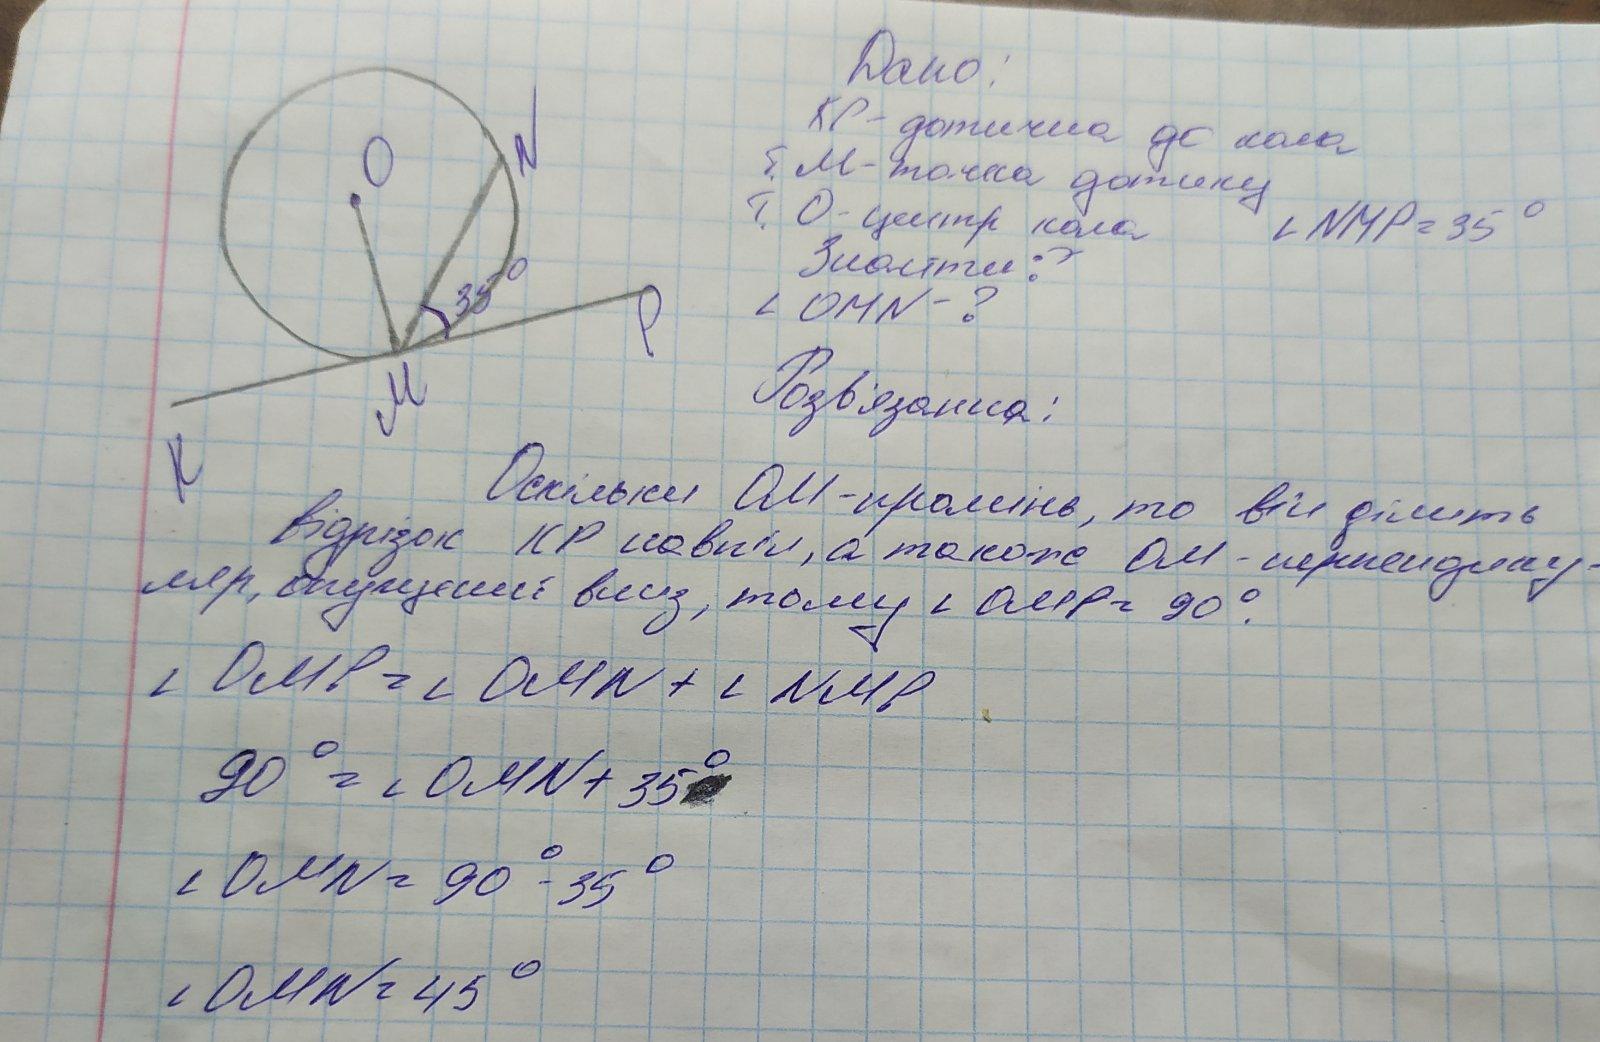 O
N
35°
P
M
K
Дано:
KP - дотична до кола
т. M - точка дотику
т. O - центр кола ∠NMP = 35°
Знайти:?
∠OMN - ?
Розв'язання:
Оскільки OM - промінь, то він ділить
відрізок KP навпіл, а також OM - перпендику-
ляр, опущений вниз, тому ∠OMP = 90°.
∠OMP = ∠OMN + ∠NMP
90° = ∠OMN + 35°
∠OMN = 90° - 35°
∠OMN = 45°